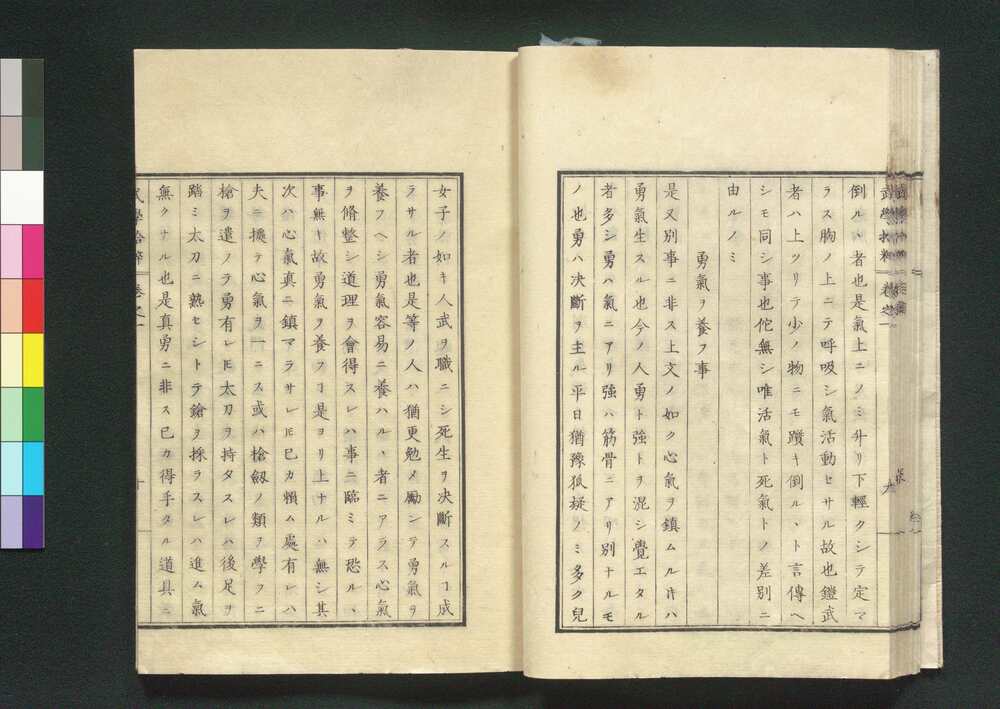 倒ルヽ者也是氣上ニノミ升リ下輕クシテ定マ
ラス胸ノ上ニテ呼吸シ氣活動セサル故也鎧武
者ハ上ツリテ少ノ物ニモ躓キ倒ルヽト言傳ヘ
シモ同シ事也佗無シ唯活氣ト死氣トノ差別ニ
由ルノミ
勇氣ヲ養フ事
是又別事ニ非ス上文ノ如ク心氣ヲ鎮ムル時ハ
勇氣生スル也今ノ人勇ト強トヲ混シ覺エタル
者多シ勇ハ氣ニアリ強ハ筋骨ニアリ別ナルモ
ノ也勇ハ决斷ヲ主ル平日猶豫狐疑ノミ多ク兒
女子ノ如キ人武ヲ職ニシ死生ヲ决斷スルヿ成
ラサル者也是等ノ人ハ猶更勉メ勵ンテ勇氣ヲ
養フヘシ勇氣容易ニ養ハルヽ者ニアラス心氣
ヲ脩整シ道理ヲ會得スレハ事ニ臨ミテ恐ルヽ
事無キ故勇氣ヲ養フヿ是ヨリ上ナルハ無シ其
次ハ心氣真ニ鎮マラサレ𪜈己カ頼ム處有レハ
夫ニ據テ心氣ヲ一ニス或ハ槍劔ノ類ヲ學フニ
槍ヲ遣ノラ勇有レ𪜈太刀ヲ持タスレハ後足ヲ
踏ミ太刀ニ熟セシトテ鎗ヲ採ラスレハ進ム氣
無クナル也是真勇ニ非ス己カ得手タル道具ニ